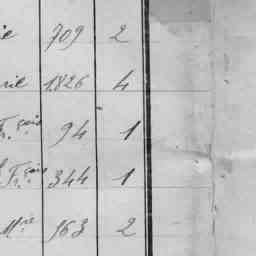 ie 709 2
rie 1826 4
Fçois 94 1
Fçois 344 1
Mie 163 2